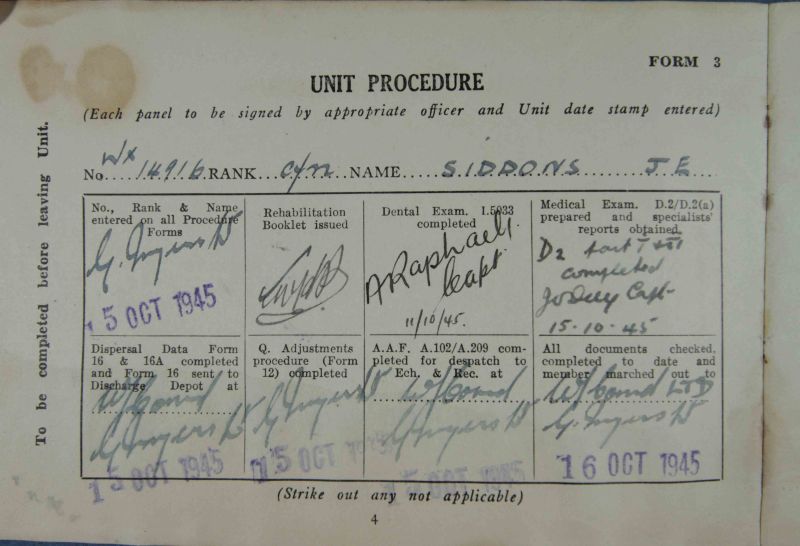 FORM 3
UNIT PROCEDURE
(Each panel to be signed by appropriate officer and Unit date stamp entered)
To be completed before leaving Unit.
No. WX 14916 RANK NAME SIDDONS J E
No., Rank & Name
entered on all Procedure
Forms
15 OCT 1945
Rehabilitation
Booklet issued
Dental Exam. I.5033
completed
A Raphael
Capt.
11/10/45.
Medical Exam. D.2/D.2(a)
prepared and specialists'
reports obtained.
D2 Part I & II
completed
Capt
15-10-45
Dispersal Data Form
16 & 16A completed
and Form 16 sent to
Discharge Depot at
15 OCT 1945
Q. Adjustments
procedure (Form
12) completed
15 OCT
A.A.F. A.102/A.209 com-
pleted for despatch to
Ech. & Rec. at
All documents checked,
completed to date and
member marched out to
16 OCT 1945
(Strike out any not applicable)
4